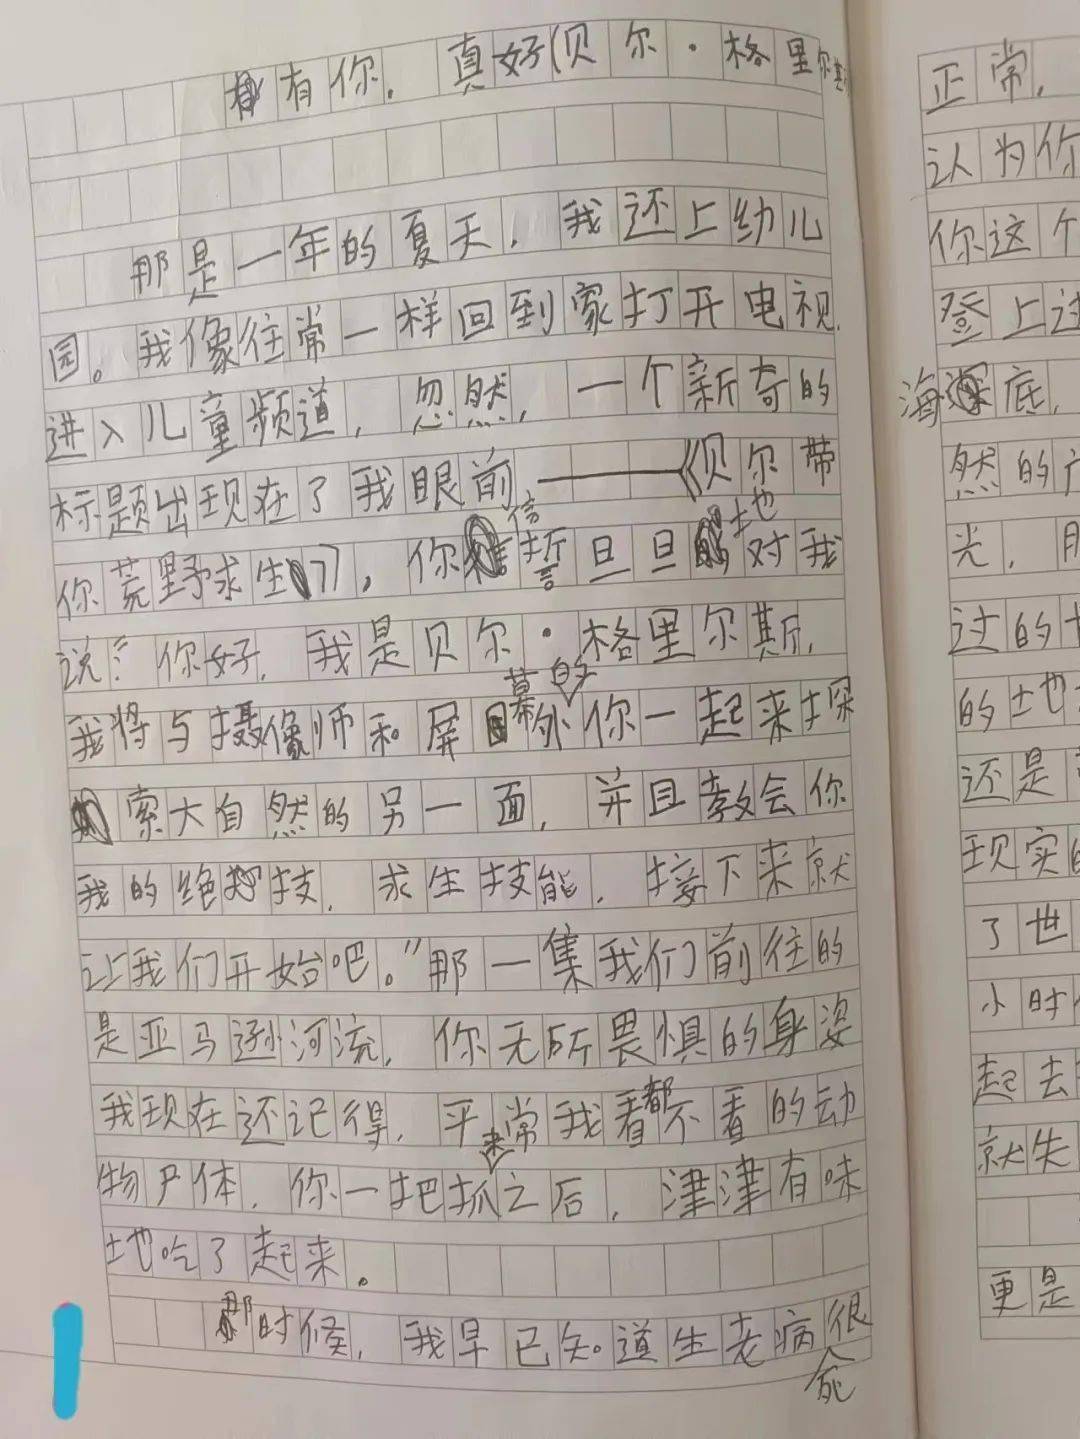 有你，真好(贝尔·格里尔斯
那是一年的夏天，我还上幼儿
园。我像往常一样回到家打开电视，
进入儿童频道，忽然，一个新奇的
标题出现在了我眼前，——《贝尔带
你荒野求生》，你信誓旦旦地对我
说：“你好，我是贝尔·格里尔斯，
我将与摄像师和屏幕外的你一起来探
索大自然的另一面，并且教会你
我的绝技，求生技能，接下来就
让我们开始吧。”那一集我们前往的
是亚马逊河流，你无所畏惧的身姿
我现在还记得，平常我看都不看的动
物尸体，你一把抓来之后，津津有味
地吃了起来。
那时候，我早已知道生老病死很
正常，
认为你
你这个
登上过
海底，
然的
光，
过的
的土地
还是
现实的
了世
小时
起去
就失
更是